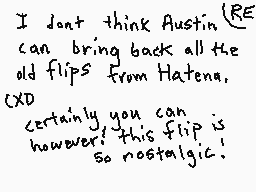 I dont think Austin (RE
can bring back all the
old flips from Hatena.
(XD
certainly you can
however! this flip is
so nostalgic!